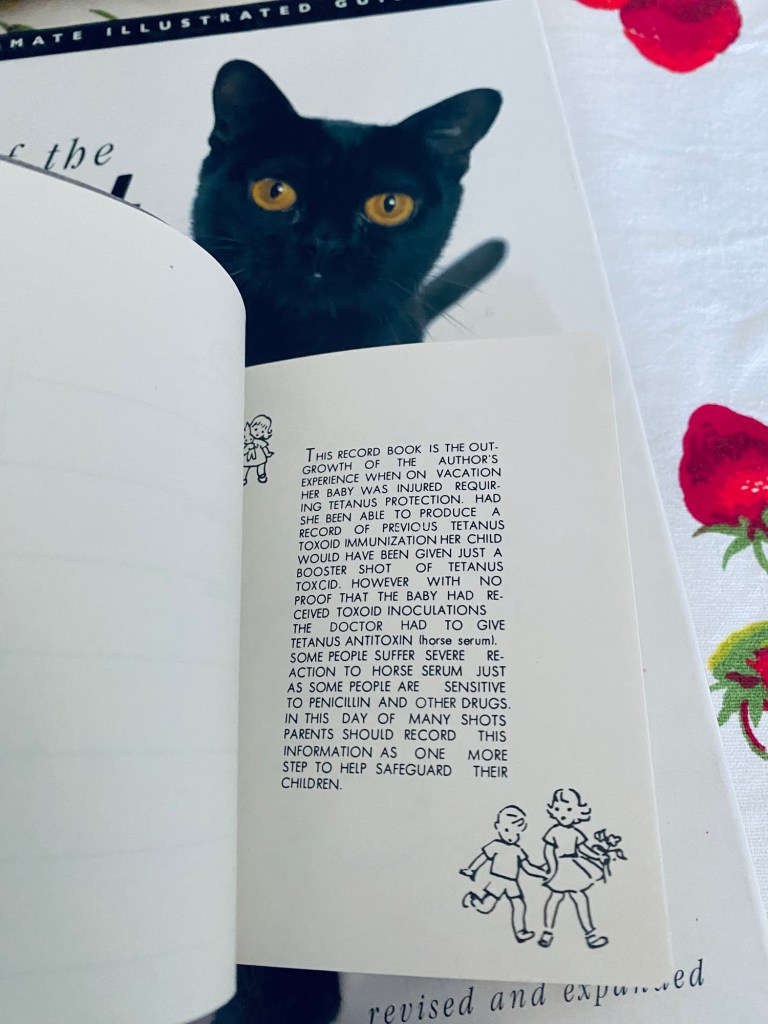 MATE ILLUSTRATED GU
of the
THIS RECORD BOOK IS THE OUT-
GROWTH OF THE AUTHOR'S
EXPERIENCE WHEN ON VACATION
HER BABY WAS INJURED REQUIR-
ING TETANUS PROTECTION. HAD
SHE BEEN ABLE TO PRODUCE A
RECORD OF PREVIOUS TETANUS
TOXOID IMMUNIZATION HER CHILD
WOULD HAVE BEEN GIVEN JUST A
BOOSTER SHOT OF TETANUS
TOXCID. HOWEVER WITH NO
PROOF THAT THE BABY HAD RE-
CEIVED TOXOID INOCULATIONS
THE DOCTOR HAD TO GIVE
TETANUS ANTITOXIN (horse serum).
SOME PEOPLE SUFFER SEVERE RE-
ACTION TO HORSE SERUM JUST
AS SOME PEOPLE ARE SENSITIVE
TO PENICILLIN AND OTHER DRUGS.
IN THIS DAY OF MANY SHOTS
PARENTS SHOULD RECORD THIS
INFORMATION AS ONE MORE
STEP TO HELP SAFEGUARD THEIR
CHILDREN.
revised and expanded